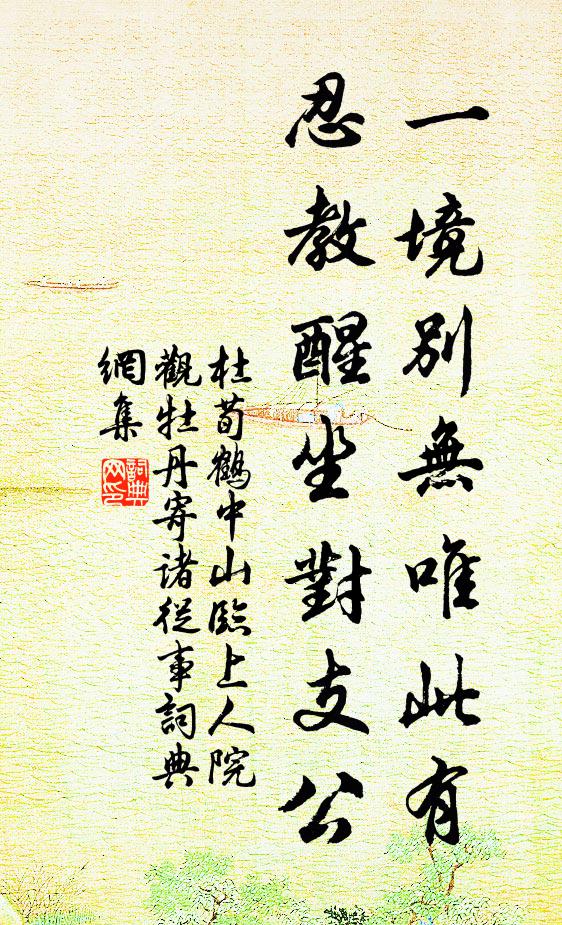 一境別無唯此有
忍教醒坐對支公
杜荀鶴中山臨上人院
觀牡丹寄諸從事詞典
網集
詞典
网印